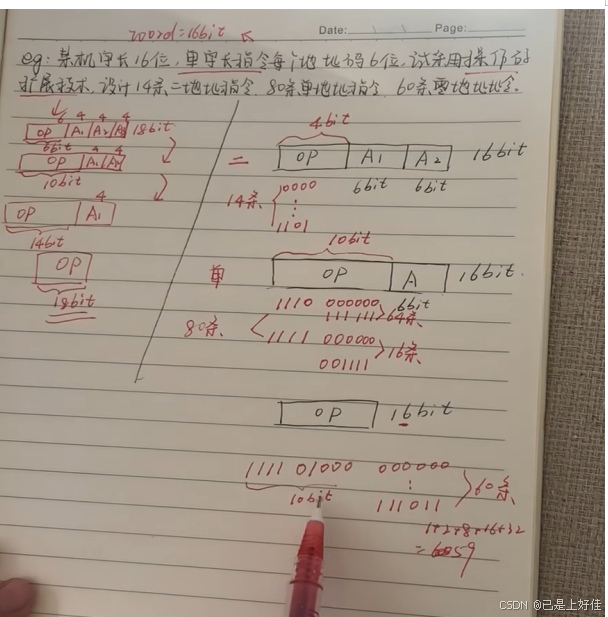 word=16bit
Date:
Page:
eg: 某机字长16位，单字长指令每个地址码6位，试采用操作码
扩展技术，设计14条二地址指令，80条单地址指令，60条零地址指令。
6 4 4 4
OP A₁ A₂ A₃ 18bit
6bit 4 4
OP A₁ A₂
10bit
4
OP A₁
14bit
OP
18bit
4bit
二 OP A1 A2 16bit
6bit 6bit
14条 0000
⋮
1101
10bit
单 OP A 16bit.
6bit
80条
1110 000000
111111 64条
1111 000000
001111 16条
OP 16bit
1111 01000 000000
10bit
⋮
111011
60条
1+2+8+16+32
=59
CSDN @己是上好佳